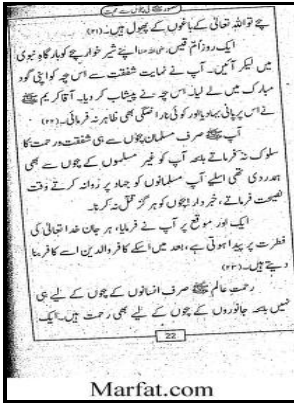 حضور کی بچوں سے محبت
بچے تو اللہ تعالیٰ کے باغوں کے پھول ہیں۔ (۲۱)
ایک روز اُم قیس رضی اللہ عنہا اپنے شیر خوار بچے کو بارگاہِ نبوی
میں لیکر آئیں۔ آپ نے نہایت شفقت سے اس بچہ کو اپنی گود
مبارک میں لے لیا۔ اس بچہ نے پیشاب کر دیا۔ آقا کریم ﷺ
نے اس پر پانی بہا دیا اور کوئی ناراضگی بھی ظاہر نہ فرمائی۔ (۲۲)
آپ ﷺ صرف مسلمان بچوں سے ہی شفقت و رحمت کا
سلوک نہ فرماتے بلکہ آپ کو غیر مسلموں کے بچوں سے بھی
ہمدردی تھی اسلیے آپ مسلمانوں کو جہاد پر روانہ کرتے وقت
نصیحت فرماتے، خبردار! بچوں کو ہرگز قتل نہ کرنا۔
ایک اور موقع پر آپ نے فرمایا، ہر جان خدا تعالیٰ کی
فطرت پر پیدا ہوتی ہے، بعد میں اسکے کافر والدین اسے کافر بنا
دیتے ہیں۔ (۲۳)
رحمتِ عالم ﷺ صرف انسانوں کے بچوں کے لیے ہی
نہیں بلکہ جانوروں کے بچوں کے لیے بھی رحمت ہیں۔ ایک
22
Marfat.com